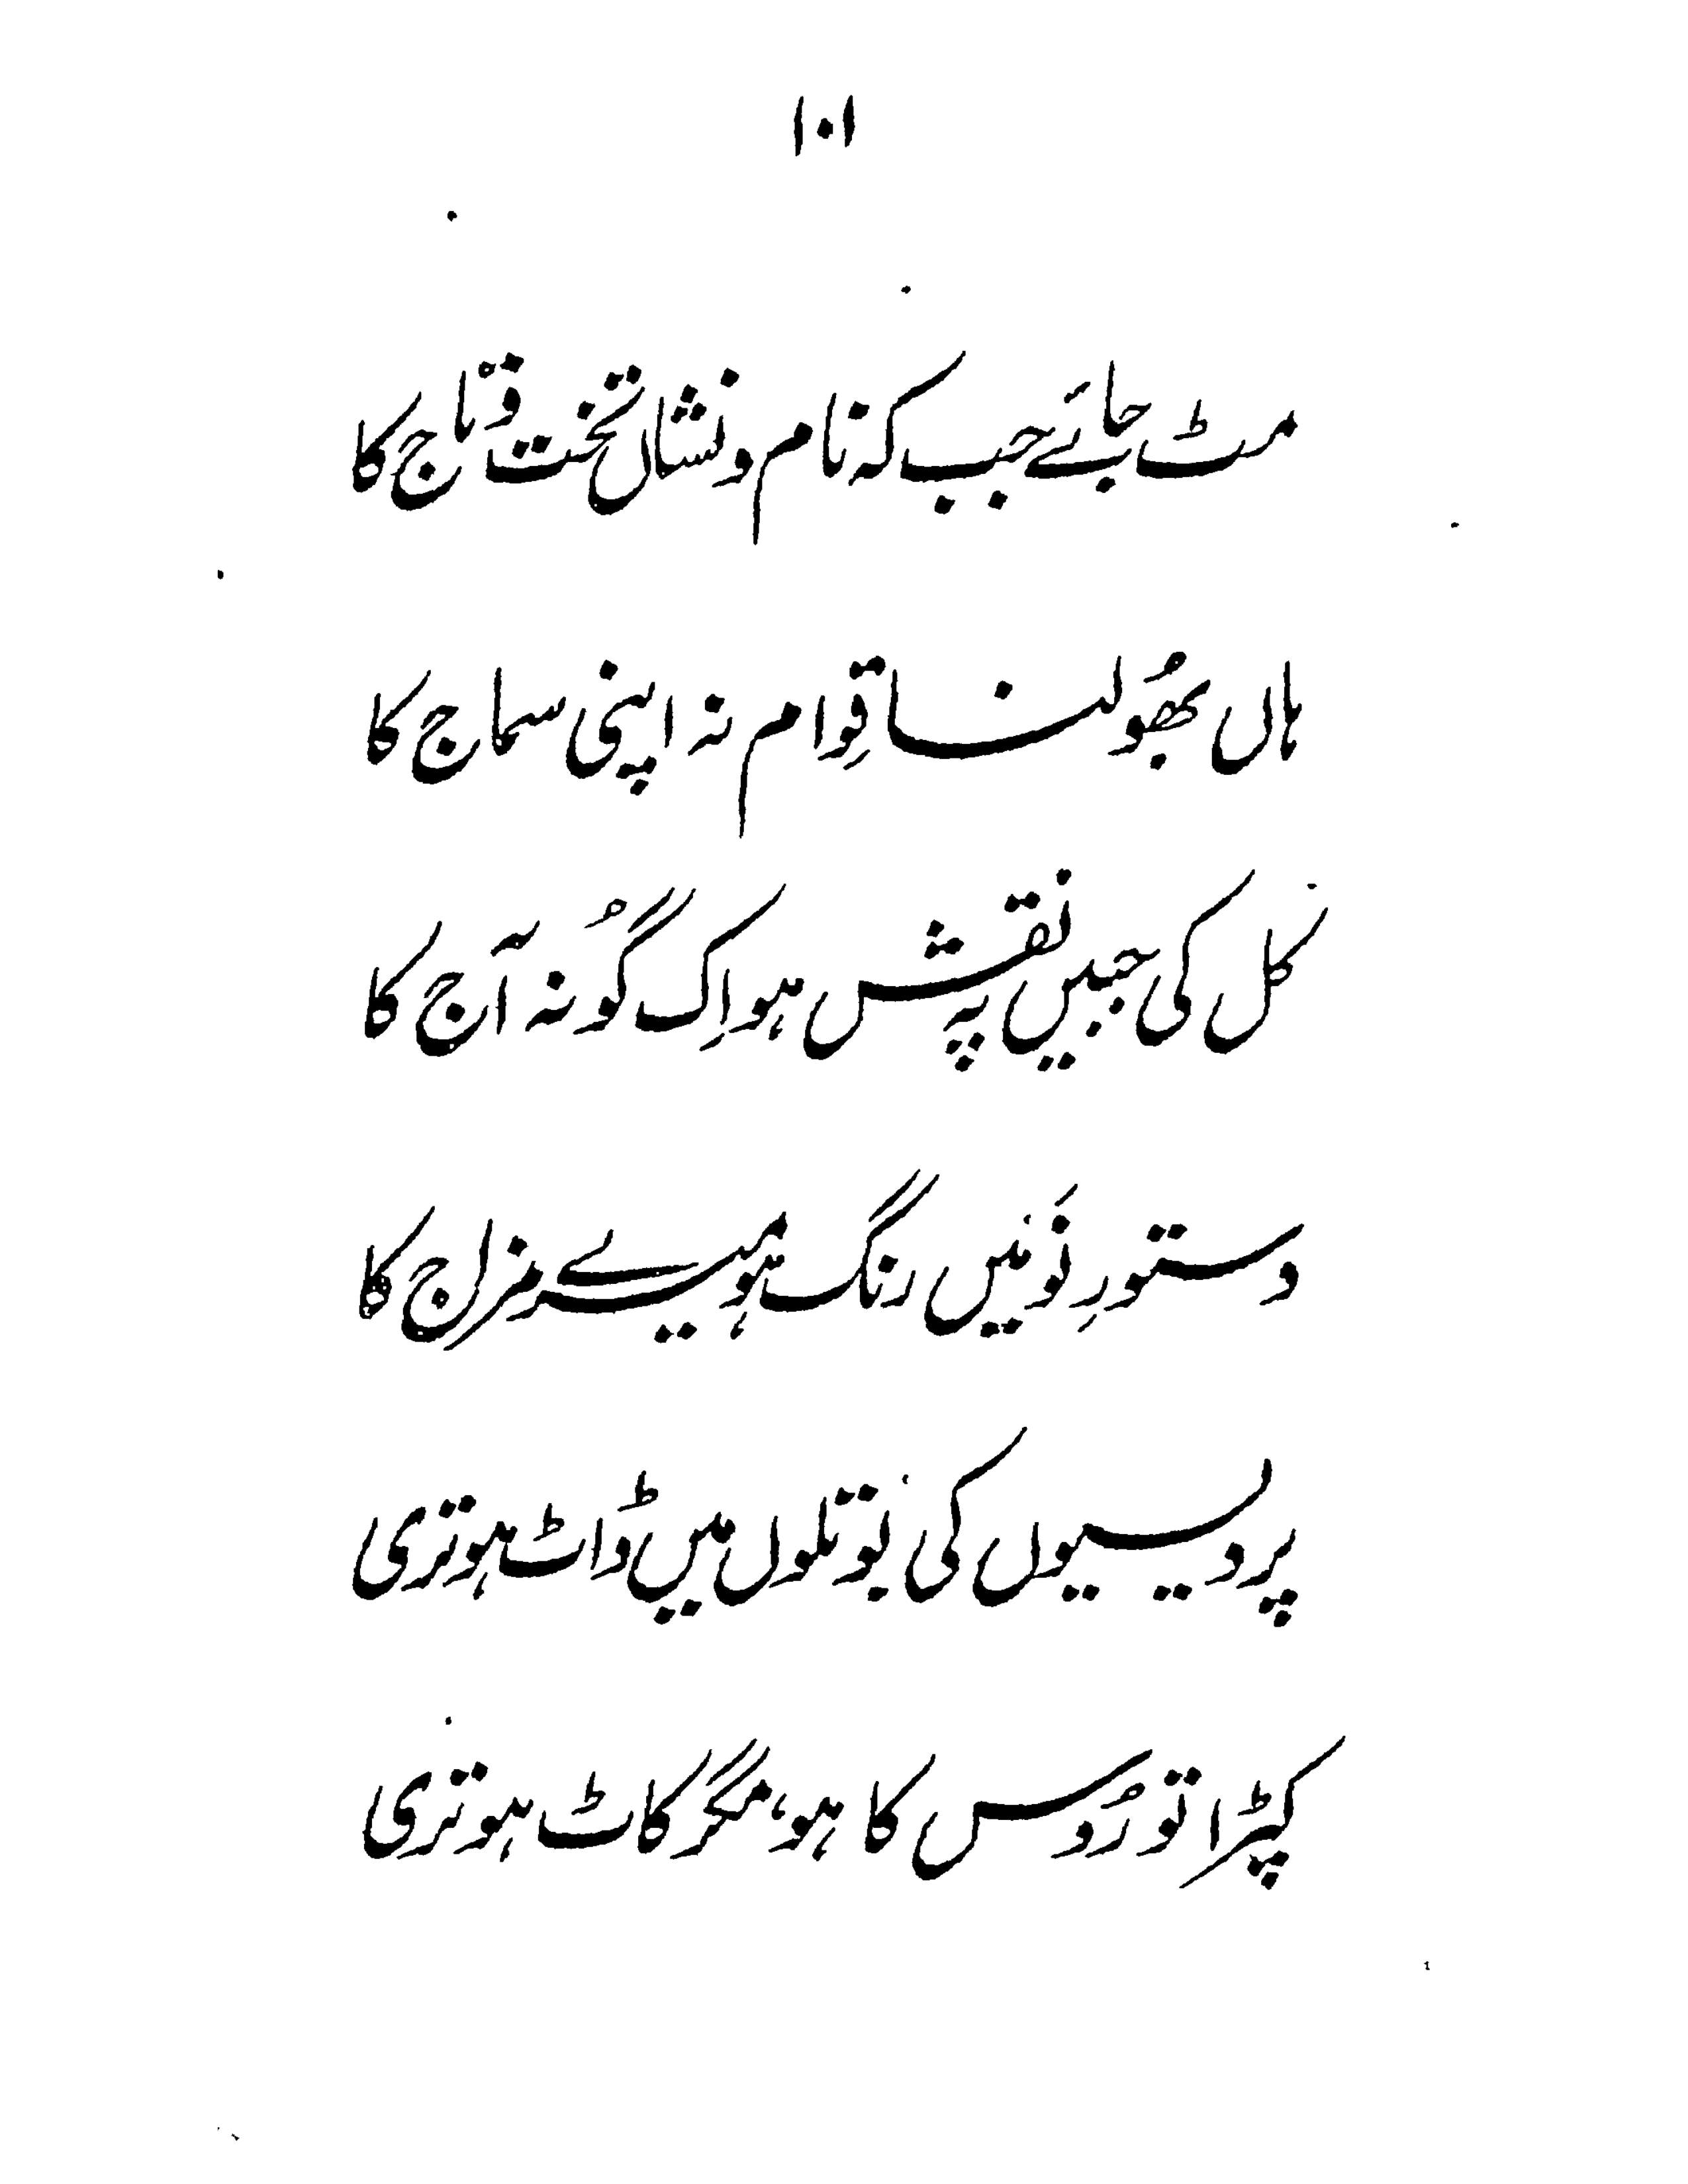 ۱۰۱
مٹ جائے جب کہ نام و نشاں تخت و تاج کا
ہاں بھُولنا قِوام نہ اپنی سماج کا
کل کی جبیں پہ نقش ہو اِک گُونہ آج کا
دستورِ نَو میں رنگ ہو میرے مزاج کا
پردیسیوں کی بوتلوں میں ڈاٹ ہو تری
کپڑا تو رُوس کا ہو، مگر کاٹ ہو تری